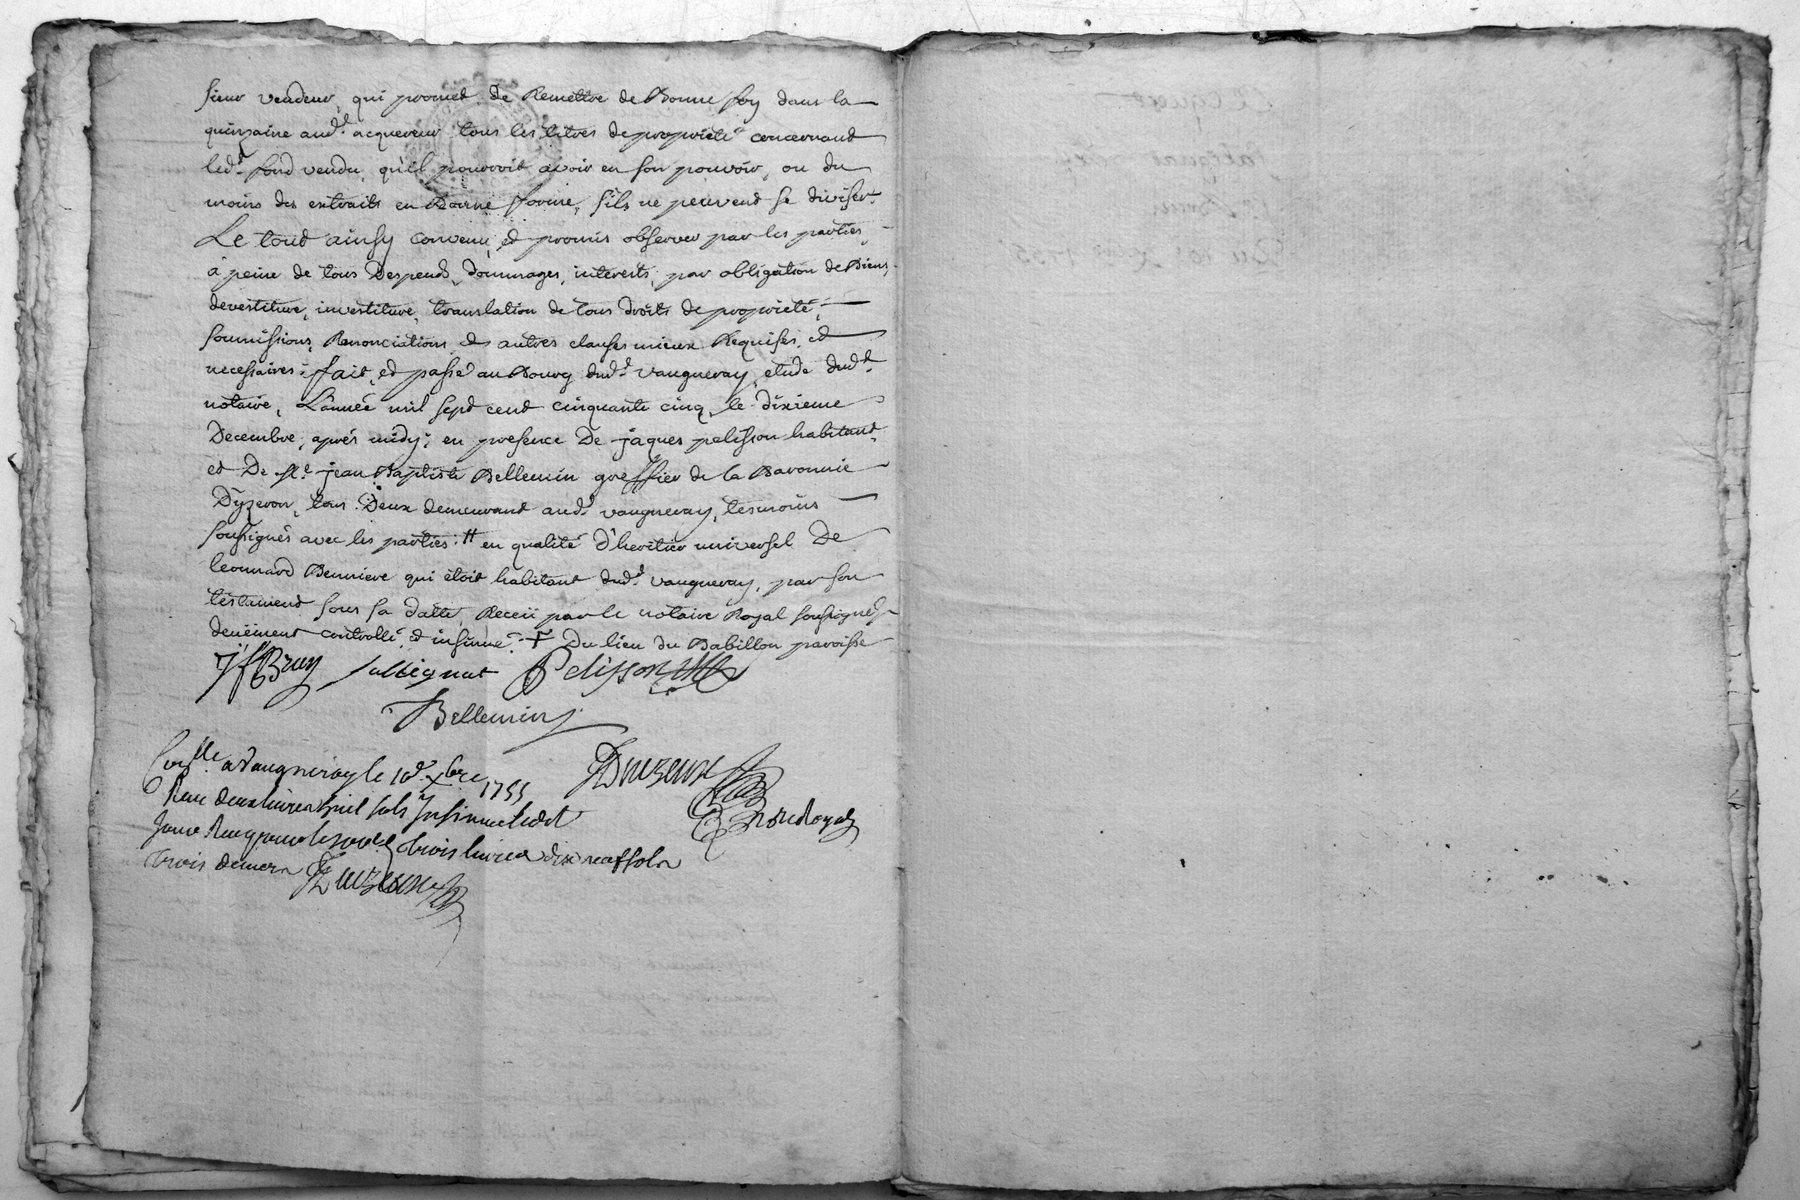 sieur vendeur, qui promet de Remettre de Bonne foy dans la
quinzaine aud.t acquereur tous les titres de propriété concernant
led.t fond vendu, qu'il pourroit avoir en son pouvoir, ou du
moins des extraits en Bonne forme, s'ils ne peuvent se diviser.
Le tout ainsy convenu, et promis observer par les parties,
à peine de tous Despend, dommages, interests, par obligation de Biens,
devestiture, investiture, translation de tous droits de proprieté,
soumissions, Renonciations et autres clauses mieux Requises, et
necessaires: fait, et passé au Bourg dud.t vaugneray, etude dud.t
notaire, L'année mil sept cent cinquante cinq, le dixieme
Decembre, après midy; en presence De jaques pelisson habitant,
et De M.e jean Baptiste Bellemin greffier de la Baronnie
D'yzeron, tous Deux demeurant aud.t vaugneray, tesmoins
soussignés avec les parties: # en qualité D'heritier universel De
leonnard Benniere qui étoit habitant dud.t vaugneray, par son
testament sous sa datte, Receü par le notaire Royal soussigné,
deuëment controllé et insinué: + Du lieu du Babillon paroisse
J f Bruy Pelisson
Bellemin
Con.lle a Vaugneray le 10.e Xbre 1755
Reçu deux livres huit sols Insinué led.t
jour Reçu trois livres dix neuf sols
trois deniers